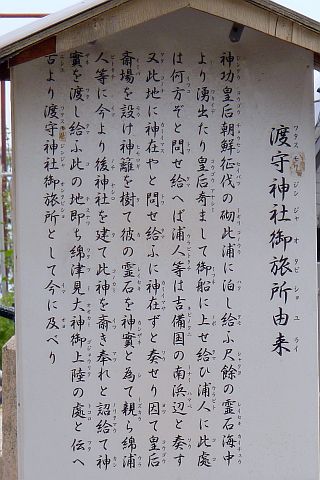 渡守神社御旅所由来
神功皇后朝鮮征伐の砌此浦に泊し給ふ尺餘の霊石海中
より湧出たり皇后奇まして御船に上せ給ひ浦人に此處
は何方ぞと問せ給へば浦人等は吉備国の南浜辺と奏す
又此地に神在やと問せ給ふに神在ずと奏せり因て皇后
斎場を設け神籬を樹て彼の霊石を神實と為て親ら綿浦
人等に今より後神社を建て此神を斎き奉れと詔給て神
實を渡し給ふ此の地即ち綿津見大神御上陸の處と伝へ
古より渡守神社御旅所として今に及べり